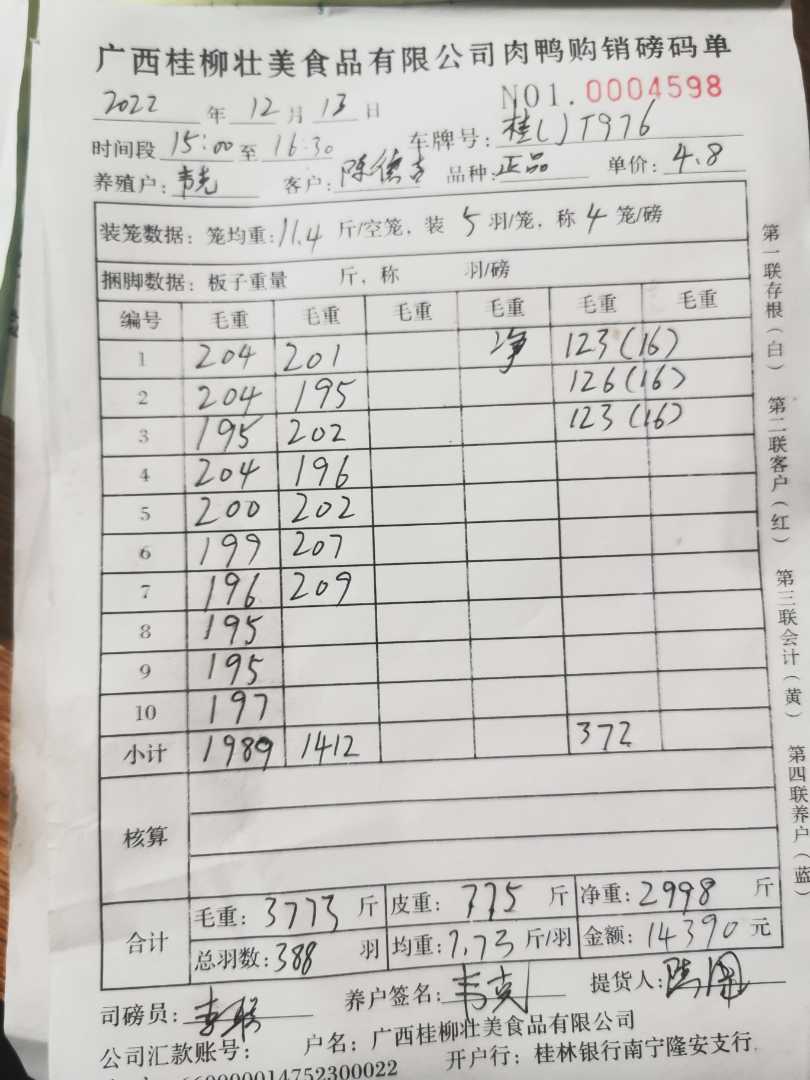 广西桂柳壮美食品有限公司肉鸭购销磅码单
NO1.0004598
2022年12月13日
时间段15:00至16:30 车牌号:桂( )T976
养殖户:韦克 客户: 品种:正品 单价:4.8
装笼数据:笼均重:11.4斤/空笼,装5羽/笼,称4笼/磅
捆脚数据:板子重量 斤,称 羽/磅
编号 毛重 毛重 毛重 毛重 毛重 毛重
1 204 201 净 123(16)
2 204 195 126(16)
3 195 202 123(16)
4 204 196
5 200 202
6 199 207
7 196 209
8 195
9 195
10 197
小计 1989 1412 372
核算
合计 毛重:3773斤 皮重:775斤 净重:2998斤
总羽数:388羽 均重:7.73斤/羽 金额:14390元
司磅员: 养户签名:韦克 提货人:
公司汇款账号: 户名:广西桂柳壮美食品有限公司
660000014752300022 开户行:桂林银行南宁隆安支行
第一联存根(白) 第二联客户(红) 第三联会计(黄) 第四联养户(蓝)